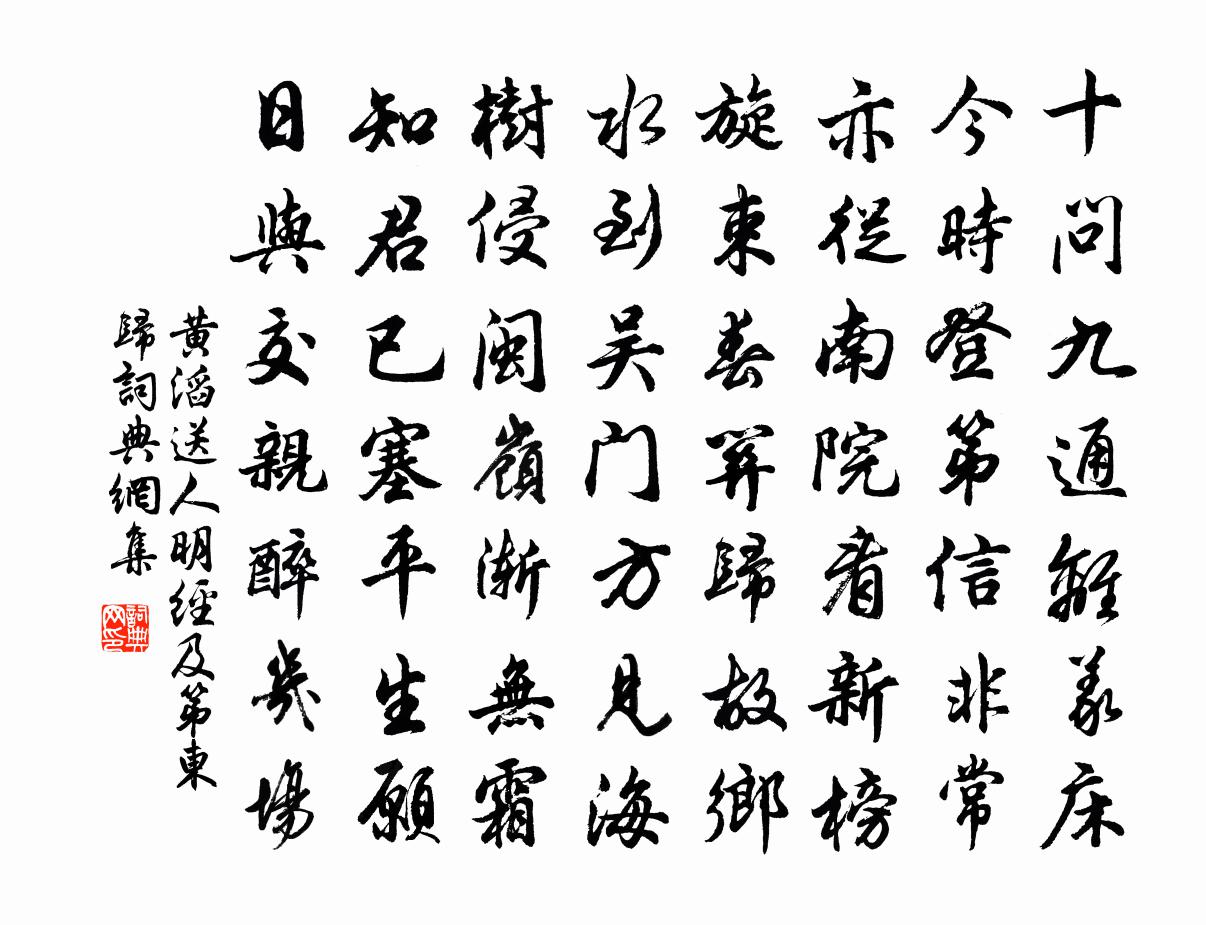 十問九通離義床
今時登第信非常
亦從南院看新榜
旋束春關歸故鄉
水到吴门方見海
樹侵閩嶺漸無霜
知君已塞平生願
日與交親醉幾場
黄滔送人明經及第東
歸詞典網集
詞典
网印